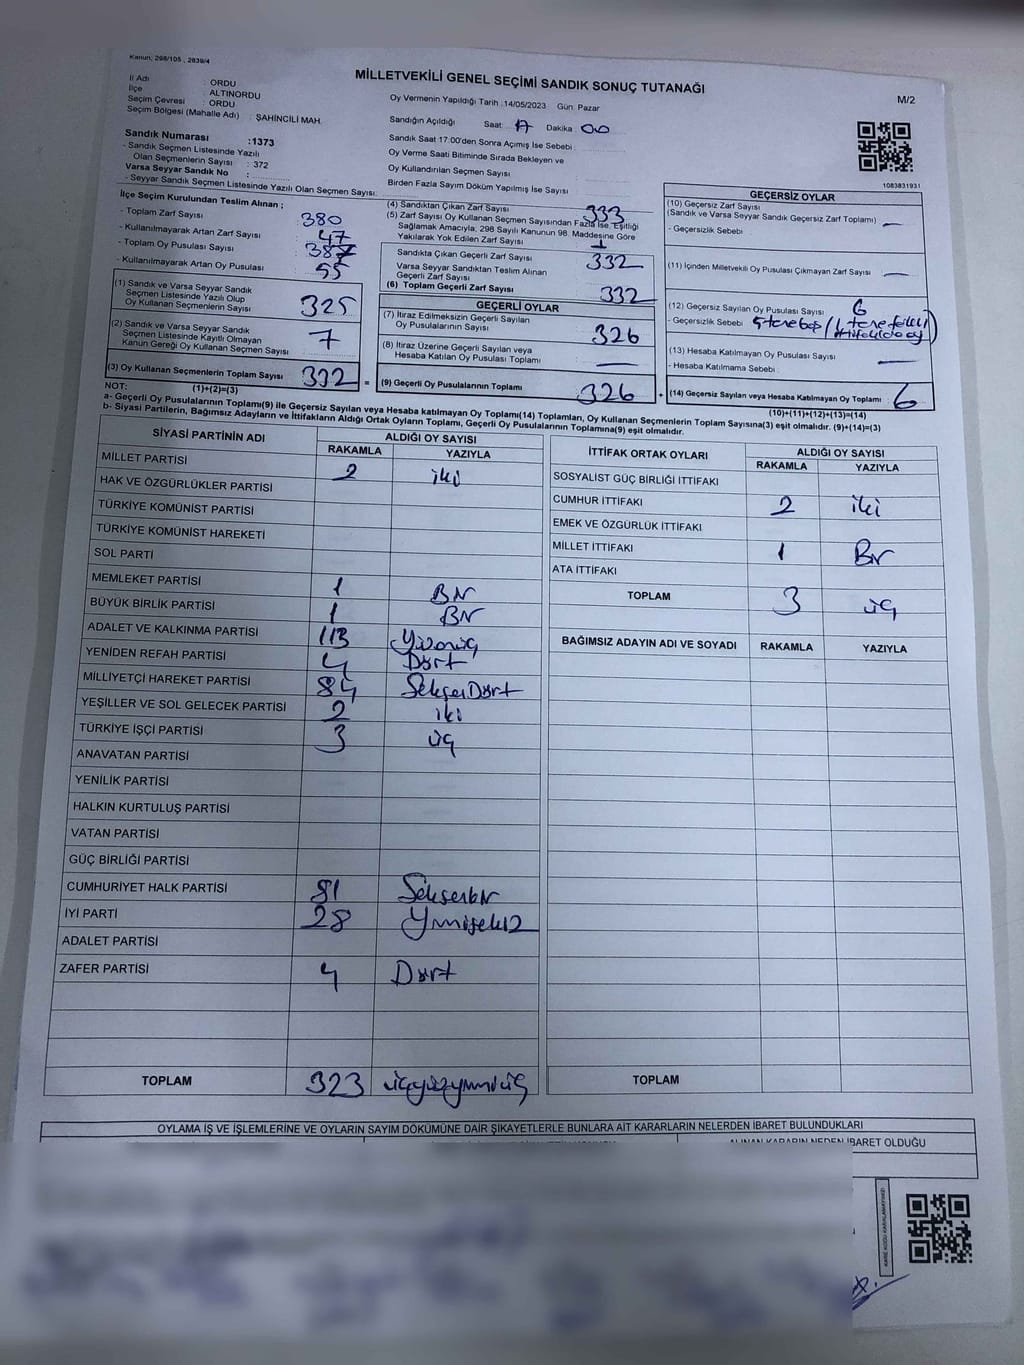 Kanun, 298/105 , 2839/4
MİLLETVEKİLİ GENEL SEÇİMİ SANDIK SONUÇ TUTANAĞI
M/2
İl Adı : ORDU
İlçe : ALTINORDU
Seçim Çevresi : ORDU
Seçim Bölgesi (Mahalle Adı) : ŞAHİNCİLİ MAH.
Oy Vermenin Yapıldığı Tarih : 14/05/2023 Gün: Pazar
Sandığın Açıldığı Saat: 17 Dakika: 00
Sandık Saat 17:00'den Sonra Açımış İse Sebebi :
Oy Verme Saati Bitiminde Sırada Bekleyen ve
Oy Kullandırılan Seçmen Sayısı
Birden Fazla Sayım Döküm Yapılmış İse Sayısı
Sandık Numarası :1373
- Sandık Seçmen Listesinde Yazılı
Olan Seçmenlerin Sayısı : 372
Varsa Seyyar Sandık No :
- Seyyar Sandık Seçmen Listesinde Yazılı Olan Seçmen Sayısı:
1083831931
İlçe Seçim Kurulundan Teslim Alınan ;
- Toplam Zarf Sayısı : 380
- Kullanılmayarak Artan Zarf Sayısı : 47
- Toplam Oy Pusulası Sayısı : 387
- Kullanılmayarak Artan Oy Pusulası : 55
(1) Sandık ve Varsa Seyyar Sandık
Seçmen Listesinde Yazılı Olup
Oy Kullanan Seçmenlerin Sayısı 325
(2) Sandık ve Varsa Seyyar Sandık
Seçmen Listesinde Kayıtlı Olmayan
Kanun Gereği Oy Kullanan Seçmen Sayısı 7
(3) Oy Kullanan Seçmenlerin Toplam Sayısı 332 =
(4) Sandıktan Çıkan Zarf Sayısı 333
(5) Zarf Sayısı Oy Kullanan Seçmen Sayısından Fazla İse, Eşitliği
Sağlamak Amacıyla, 298 Sayılı Kanunun 98. Maddesine Göre
Yakılarak Yok Edilen Zarf Sayısı 1
Sandıkta Çıkan Geçerli Zarf Sayısı 332
Varsa Seyyar Sandıktan Teslim Alınan
Geçerli Zarf Sayısı
(6) Toplam Geçerli Zarf Sayısı 332
GEÇERLİ OYLAR
(7) İtiraz Edilmeksizin Geçerli Sayılan
Oy Pusulalarının Sayısı 326
(8) İtiraz Üzerine Geçerli Sayılan veya
Hesaba Katılan Oy Pusulası Toplamı —
(9) Geçerli Oy Pusulalarının Toplamı 326 +
GEÇERSİZ OYLAR
(10) Geçersiz Zarf Sayısı
(Sandık ve Varsa Seyyar Sandık Geçersiz Zarf Toplamı) —
- Geçersizlik Sebebi
(11) İçinden Milletvekili Oy Pusulası Çıkmayan Zarf Sayısı —
(12) Geçersiz Sayılan Oy Pusulası Sayısı 6
- Geçersizlik Sebebi : 5 tane boş / 1 tane
(13) Hesaba Katılmayan Oy Pusulası Sayısı —
- Hesaba Katılmama Sebebi :
(14) Geçersiz Sayılan veya Hesaba Katılmayan Oy Toplamı 6
NOT: (1)+(2)=(3)
(10)+(11)+(12)+(13)=(14)
a- Geçerli Oy Pusulaları Toplamı(9) ile Geçersiz Sayılan veya Hesaba katılmayan Oy Toplamı(14) Toplamları, Oy Kullanan Seçmenlerin Toplam Sayısına(3) eşit olmalıdır. (9)+(14)=(3)
b- Siyasi Partilerin, Bağımsız Adayların ve İttifakların Aldığı Ortak Oyların Toplamı, Geçerli Oy Pusulalarının Toplamına(9) eşit olmalıdır.
SİYASİ PARTİNİN ADI ALDIĞI OY SAYISI
RAKAMLA YAZIYLA
MİLLET PARTİSİ 2 iki
HAK VE ÖZGÜRLÜKLER PARTİSİ
TÜRKİYE KOMÜNİST PARTİSİ
TÜRKİYE KOMÜNİST HAREKETİ
SOL PARTİ
MEMLEKET PARTİSİ 1 Bir
BÜYÜK BİRLİK PARTİSİ 1 Bir
ADALET VE KALKINMA PARTİSİ 113 Yüzonüç
YENİDEN REFAH PARTİSİ 4 Dört
MİLLİYETÇİ HAREKET PARTİSİ 84 SeksenDört
YEŞİLLER VE SOL GELECEK PARTİSİ 2 iki
TÜRKİYE İŞÇİ PARTİSİ 3 üç
ANAVATAN PARTİSİ
YENİLİK PARTİSİ
HALKIN KURTULUŞ PARTİSİ
VATAN PARTİSİ
GÜÇ BİRLİĞİ PARTİSİ
CUMHURİYET HALK PARTİSİ 81 Seksenbir
İYİ PARTİ 28 Yirmisekiz
ADALET PARTİSİ
ZAFER PARTİSİ 4 Dört
TOPLAM 323 üçyüzyirmiüç
İTTİFAK ORTAK OYLARI ALDIĞI OY SAYISI
RAKAMLA YAZIYLA
SOSYALİST GÜÇ BİRLİĞİ İTTİFAKI
CUMHUR İTTİFAKI 2 iki
EMEK VE ÖZGÜRLÜK İTTİFAKI
MİLLET İTTİFAKI 1 Bir
ATA İTTİFAKI
TOPLAM 3 üç
BAĞIMSIZ ADAYIN ADI VE SOYADI RAKAMLA YAZIYLA
TOPLAM
OYLAMA İŞ VE İŞLEMLERİNE VE OYLARIN SAYIM DÖKÜMÜNE DAİR ŞİKAYETLERLE BUNLARA AİT KARARLARIN NELERDEN İBARET BULUNDUKLARI
ALINAN KARARIN NEDEN İBARET OLDUĞU
KARE KODU KARALAMAYINIZ!